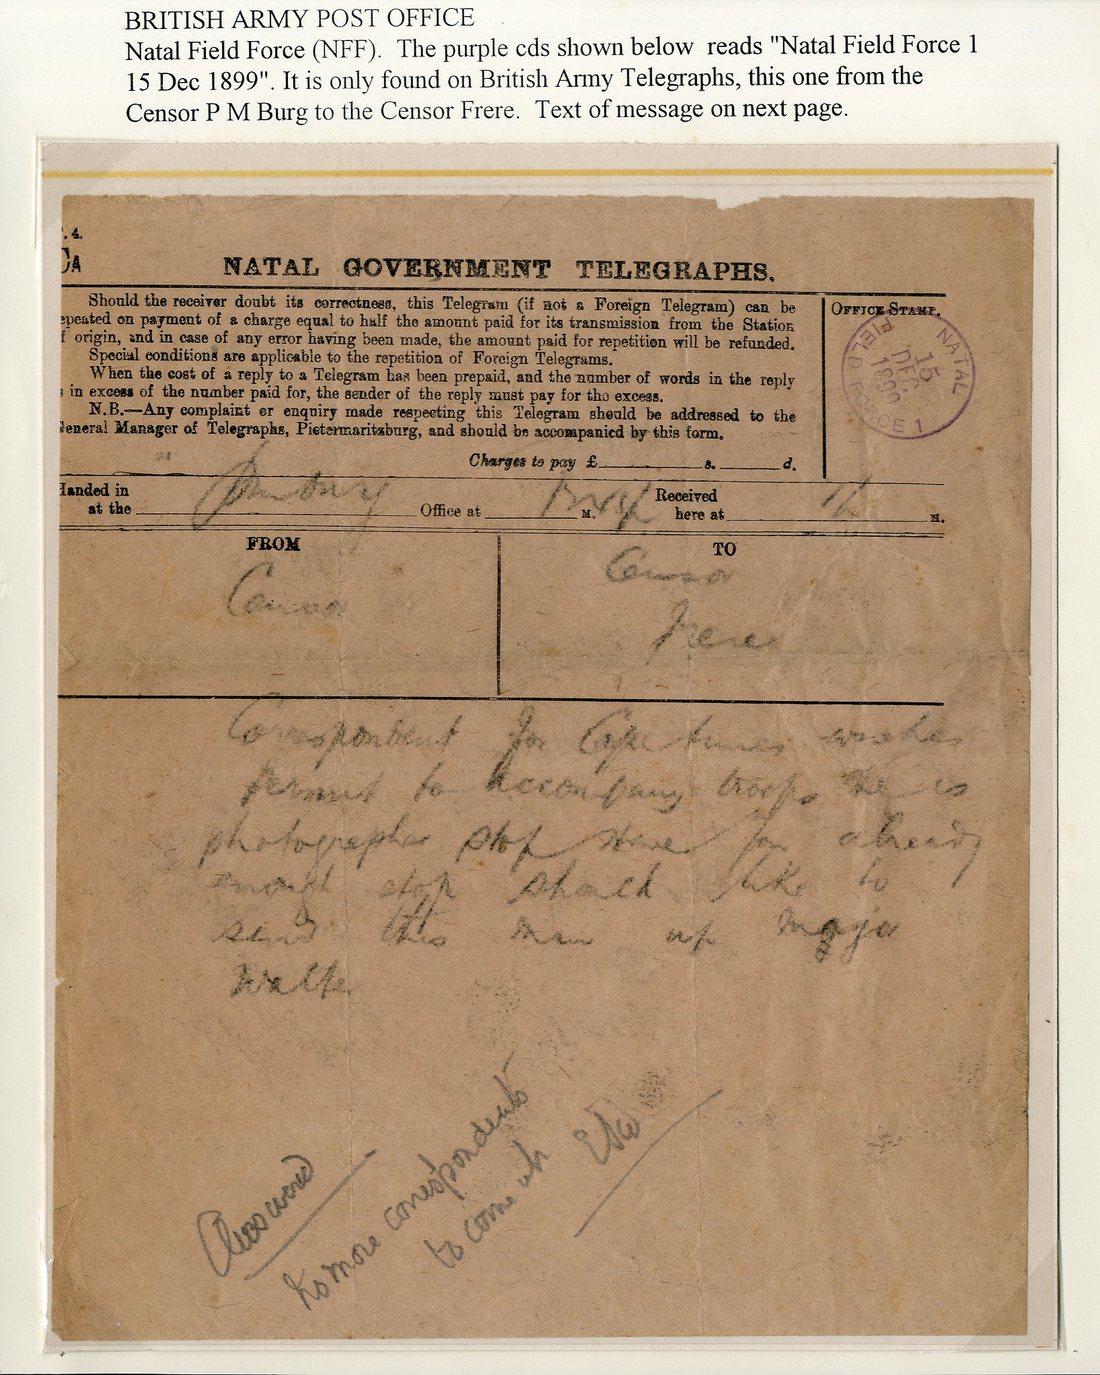 BRITISH ARMY POST OFFICE
Natal Field Force (NFF). The purple cds shown below reads "Natal Field Force 1
15 Dec 1899". It is only found on British Army Telegraphs, this one from the
Censor P M Burg to the Censor Frere. Text of message on next page.
.4.
CA
NATAL GOVERNMENT TELEGRAPHS.
Should the receiver doubt its correctness, this Telegram (if not a Foreign Telegram) can be
epeated on payment of a charge equal to half the amount paid for its transmission from the Station
f origin, and in case of any error having been made, the amount paid for repetition will be refunded.
Special conditions are applicable to the repetition of Foreign Telegrams.
When the cost of a reply to a Telegram has been prepaid, and the number of words in the reply
s in excess of the number paid for, the sender of the reply must pay for the excess.
N.B.—Any complaint or enquiry made respecting this Telegram should be addressed to the
General Manager of Telegraphs, Pietermaritzburg, and should be accompanied by this form.
Charges to pay £ s. d.
OFFICE STAMP.
NATAL FIELD FORCE 1
15
DEC
1899
Handed in
at the Office at M. Received
here at M.
FROM
TO
Censor
Censor
Frere
Correspondent for Cape times wishes
permit to accompany troops he is
photographer stop have you already
enough stop should like to
send this man up Major
Walter
Answered
No more correspondents
to come up